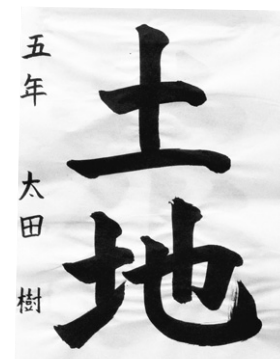 土地
五年 太田 樹